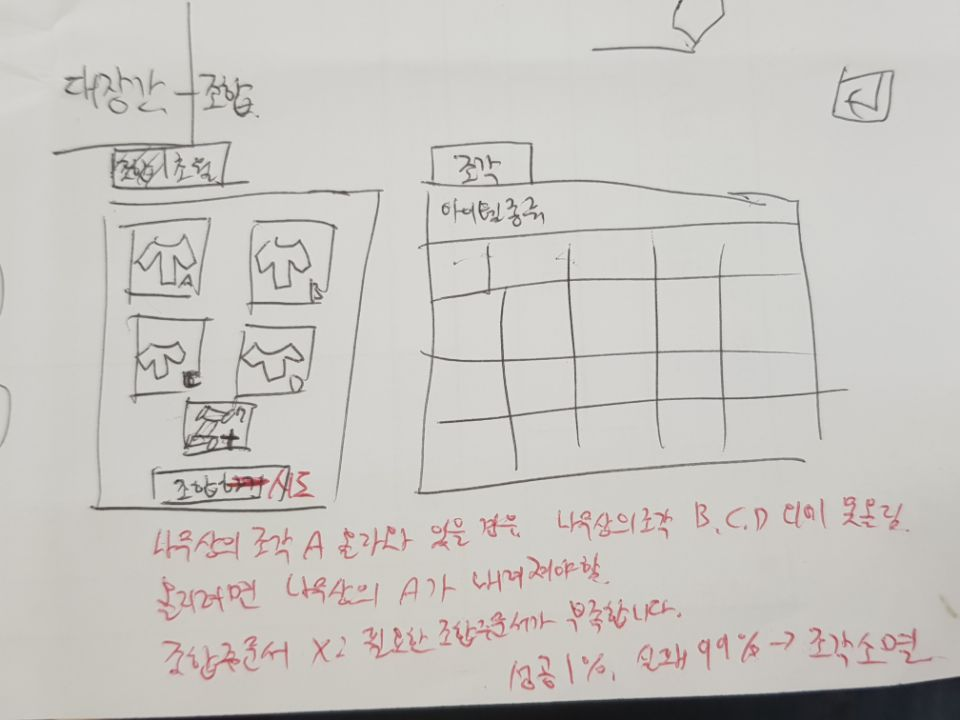 대장간 - 조합
초월
조각
아이템종류
A
B
C
D
조합 시도
나무상의 조각 A 올라와 있을 경우 나무상의조각 B.C.D 더이 못올림.
올리려면 나무상의 A가 내려져야함.
조합주문서 X2 필요한 조합주문서가 부족합니다.
성공1%, 실패99% → 조각소멸